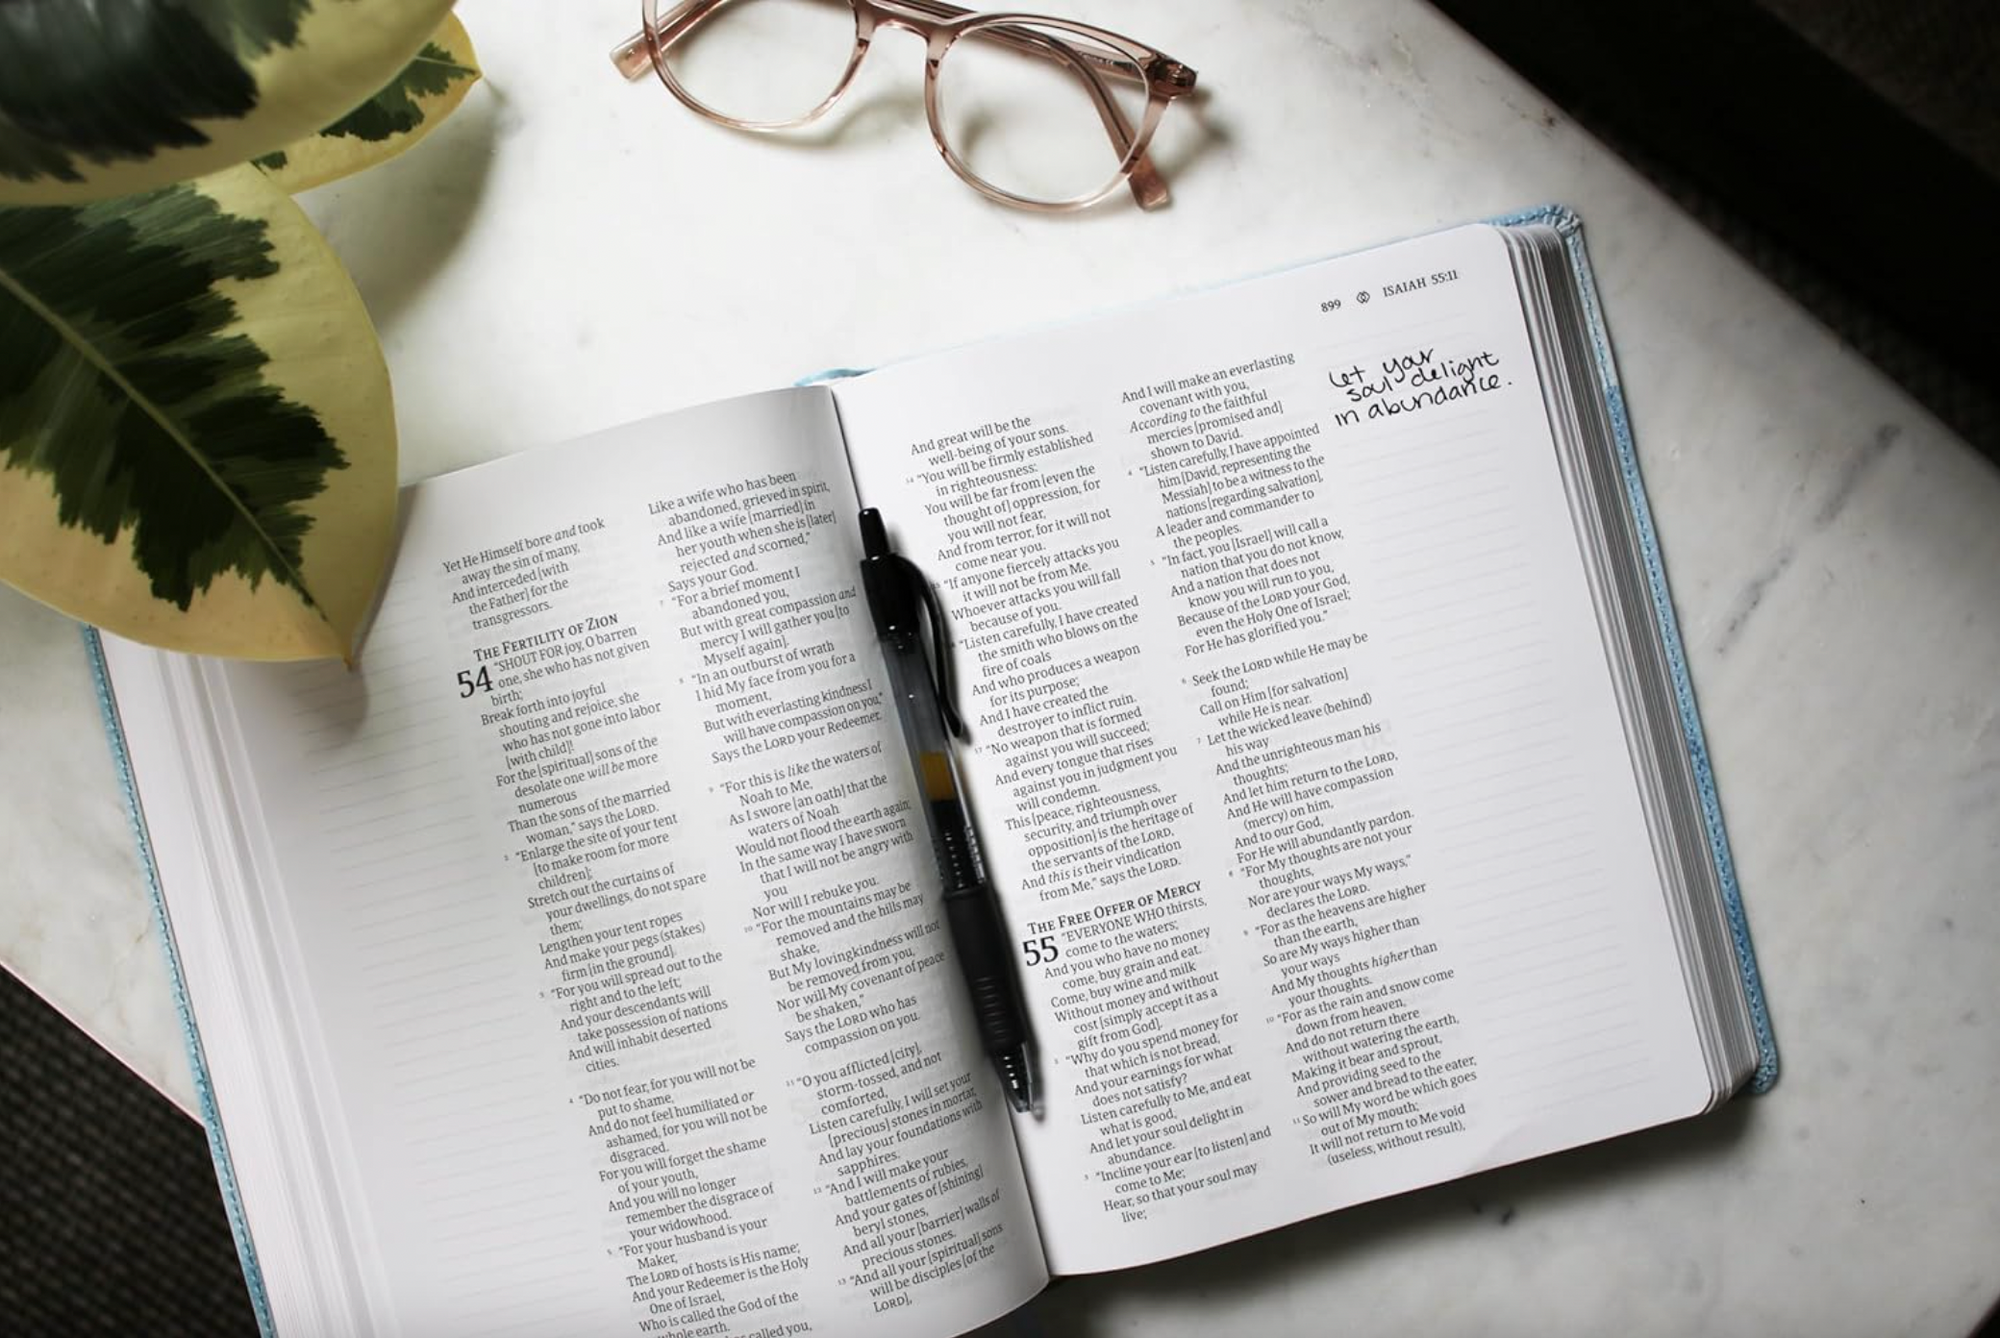 Yet He Himself bore and took
away the sin of many,
And interceded [with
the Father] for the
transgressors.
THE FERTILITY OF ZION
54 "SHOUT FOR joy, O barren
one, she who has not given
birth;
Break forth into joyful
shouting and rejoice, she
who has not gone into labor
[with child]!
For the [spiritual] sons of the
desolate one will be more
numerous
Than the sons of the married
woman," says the LORD.
2 "Enlarge the site of your tent
[to make room for more
children];
Stretch out the curtains of
your dwellings, do not spare
them;
Lengthen your tent ropes
And make your pegs (stakes)
firm [in the ground].
3 "For you will spread out to the
right and to the left;
And your descendants will
take possession of nations
And will inhabit deserted
cities.
4 "Do not fear, for you will not be
put to shame,
And do not feel humiliated or
ashamed, for you will not be
disgraced.
For you will forget the shame
of your youth,
And you will no longer
remember the disgrace of
your widowhood.
5 "For your husband is your
Maker,
The LORD of hosts is His name;
And your Redeemer is the Holy
One of Israel,
Who is called the God of the
whole earth.
called you,
Like a wife who has been
abandoned, grieved in spirit,
And like a wife [married] in
her youth when she is [later]
rejected and scorned,"
Says your God.
7 "For a brief moment I
abandoned you,
But with great compassion and
mercy I will gather you [to
Myself again].
8 "In an outburst of wrath
I hid My face from you for a
moment,
But with everlasting kindness I
will have compassion on you,"
Says the LORD your Redeemer.
9 "For this is like the waters of
Noah to Me,
As I swore [an oath] that the
waters of Noah
Would not flood the earth again;
In the same way I have sworn
that I will not be angry with
you
Nor will I rebuke you.
10 "For the mountains may be
removed and the hills may
shake,
But My lovingkindness will not
be removed from you,
Nor will My covenant of peace
be shaken,"
Says the LORD who has
compassion on you.
11 "O you afflicted [city],
storm-tossed, and not
comforted,
Listen carefully, I will set your
[precious] stones in mortar,
And lay your foundations with
sapphires.
12 "And I will make your
battlements of rubies,
And your gates of [shining]
beryl stones,
And all your [barrier] walls of
precious stones.
13 "And all your [spiritual] sons
will be disciples [of the
LORD],
899 ISAIAH 55:11
And great will be the
well-being of your sons.
14 "You will be firmly established
in righteousness:
You will be far from [even the
thought of] oppression, for
you will not fear,
And from terror, for it will not
come near you.
15 "If anyone fiercely attacks you
it will not be from Me.
Whoever attacks you will fall
because of you.
"Listen carefully, I have created
the smith who blows on the
fire of coals
And who produces a weapon
for its purpose;
And I have created the
destroyer to inflict ruin.
17 "No weapon that is formed
against you will succeed;
And every tongue that rises
against you in judgment you
will condemn.
This [peace, righteousness,
security, and triumph over
opposition] is the heritage of
the servants of the LORD,
And this is their vindication
from Me," says the LORD.
THE FREE OFFER OF MERCY
55 "EVERYONE WHO thirsts,
come to the waters;
And you who have no money
come, buy grain and eat.
Come, buy wine and milk
Without money and without
cost [simply accept it as a
gift from God].
2 "Why do you spend money for
that which is not bread,
And your earnings for what
does not satisfy?
Listen carefully to Me, and eat
what is good,
And let your soul delight in
abundance.
3 "Incline your ear [to listen] and
come to Me;
Hear, so that your soul may
live;
And I will make an everlasting
covenant with you,
According to the faithful
mercies [promised and]
shown to David.
4 "Listen carefully, I have appointed
him [David, representing the
Messiah] to be a witness to the
nations [regarding salvation],
A leader and commander to
the peoples.
5 "In fact, you [Israel] will call a
nation that you do not know,
And a nation that does not
know you will run to you,
Because of the LORD your God,
even the Holy One of Israel;
For He has glorified you."
6 Seek the LORD while He may be
found;
Call on Him [for salvation]
while He is near.
7 Let the wicked leave (behind)
his way
And the unrighteous man his
thoughts;
And let him return to the LORD,
And He will have compassion
(mercy) on him,
And to our God,
For He will abundantly pardon.
8 "For My thoughts are not your
thoughts,
Nor are your ways My ways,"
declares the LORD.
9 "For as the heavens are higher
than the earth,
So are My ways higher than
your ways
And My thoughts higher than
your thoughts.
10 "For as the rain and snow come
down from heaven,
And do not return there
without watering the earth,
Making it bear and sprout,
And providing seed to the
sower and bread to the eater,
11 So will My word be which goes
out of My mouth;
It will not return to Me void
(useless, without result),
Let your
soul delight
in abundance.